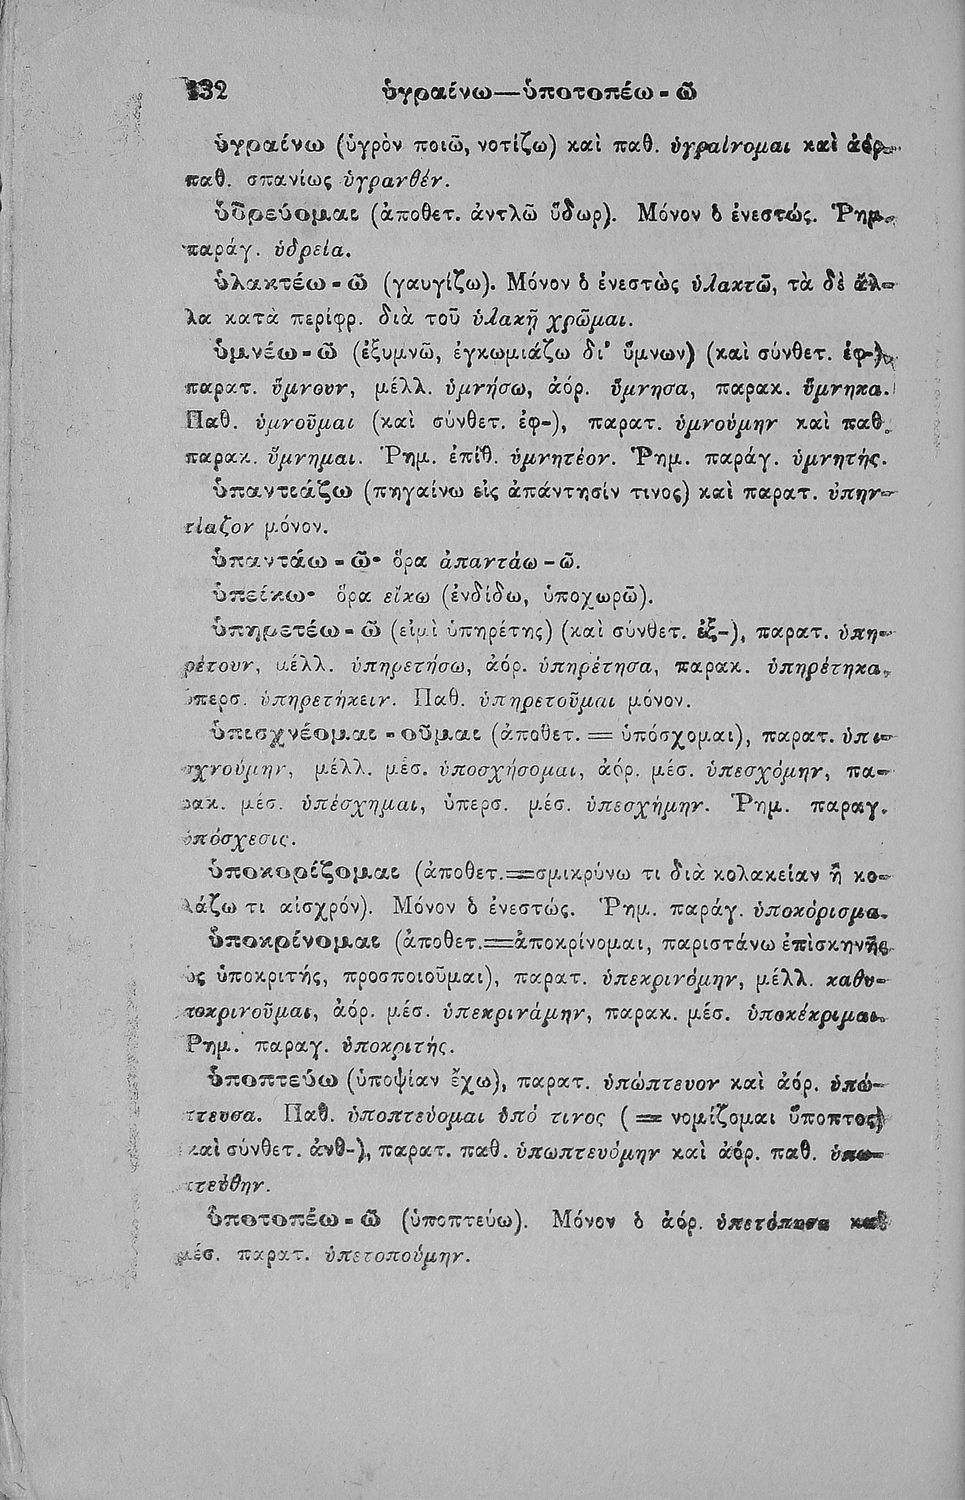 132 ὑγραίνω—ὑποτοπέω - ῶ
ὑγραίνω (ὑγρὸν ποιῶ, νοτίζω) καὶ παθ. ὑγραίνομαι καὶ ἀόρ.
παθ. σπανίως ὑγρανθέν.
ὑδρεύομαι (ἀποθετ. ἀντλῶ ὕδωρ). Μόνον ὁ ἐνεστώς. Ῥημ.
παράγ. ὑδρεία.
ὑλακτέω - ῶ (γαυγίζω). Μόνον ὁ ἐνεστὼς ὑλακτῶ, τὰ δὲ ἄλ-
λα κατὰ περίφρ. διὰ τοῦ ὑλακῇ χρῶμαι.
ὑμνέω - ῶ (ἐξυμνῶ, ἐγκωμιάζω δι' ὕμνων) (καὶ σύνθετ. ἐφ-),
παρατ. ὕμνουν, μέλλ. ὑμνήσω, ἀόρ. ὕμνησα, παρακ. ὕμνηκα.
Παθ. ὑμνοῦμαι (καὶ σύνθετ. ἐφ-), παρατ. ὑμνούμην καὶ παθ.
παρακ. ὕμνημαι. Ῥημ. ἐπίθ. ὑμνητέον. Ῥημ. παράγ. ὑμνητής.
ὑπαντιάζω (πηγαίνω εἰς ἀπάντησίν τινος) καὶ παρατ. ὑπην-
τίαζον μόνον.
ὑπαντάω - ῶ· ὅρα ἀπαντάω - ῶ.
ὑπείκω· ὅρα εἴκω (ἐνδίδω, ὑποχωρῶ).
ὑπηρετέω - ῶ (εἰμὶ ὑπηρέτης) (καὶ σύνθετ. ἐξ-), παρατ. ὑπη-
ρέτουν, μέλλ. ὑπηρετήσω, ἀόρ. ὑπηρέτησα, παρακ. ὑπηρέτηκα,
ὑπερσ. ὑπηρετήκειν. Παθ. ὑπηρετοῦμαι μόνον.
ὑπισχνέομαι - οῦμαι (ἀποθετ. = ὑπόσχομαι), παρατ. ὑπι-
σχνούμην, μέλλ. μέσ. ὑποσχήσομαι, ἀόρ. μέσ. ὑπεσχόμην, πα-
ρακ. μέσ. ὑπέσχημαι, ὑπερσ. μέσ. ὑπεσχήμην. Ῥημ. παραγ.
ὑπόσχεσις.
ὑποκορίζομαι (ἀποθετ.=σμικρύνω τι διὰ κολακείαν ἢ κο-
λάζω τι αἰσχρόν). Μόνον ὁ ἐνεστώς. Ῥημ. παράγ. ὑποκόρισμα.
ὑποκρίνομαι (ἀποθετ.=ἀποκρίνομαι, παριστάνω ἐπὶσκηνῆς
ὡς ὑποκριτής, προσποιοῦμαι), παρατ. ὑπεκρινόμην, μέλλ. καθυ-
ποκρινοῦμαι, ἀόρ. μέσ. ὑπεκρινάμην, παρακ. μέσ. ὑποκέκριμαι.
Ῥημ. παραγ. ὑποκριτής.
ὑποπτεύω (ὑποψίαν ἔχω), παρατ. ὑπώπτευον καὶ ἀόρ. ὑπώ-
πτευσα. Παθ. ὑποπτεύομαι ὑπό τινος ( = νομίζομαι ὕποπτος)
καὶ σύνθετ. ἀνθ-), παρατ. παθ. ὑπωπτευόμην καὶ ἀόρ. παθ. ὑπω-
πτεύθην.
ὑποτοπέω - ῶ (ὑποπτεύω). Μόνον ὁ ἀόρ. ὑπετόπησα καὶ
μέσ. παρατ. ὑπετοπούμην.